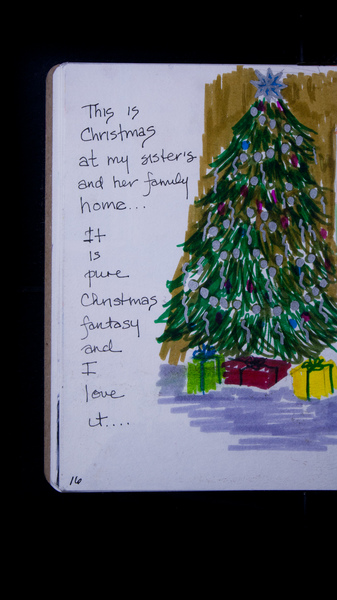 This is
Christmas
at my sister's
and her family
home...
It
is
pure
Christmas
fantasy
and
I
love
it....
16